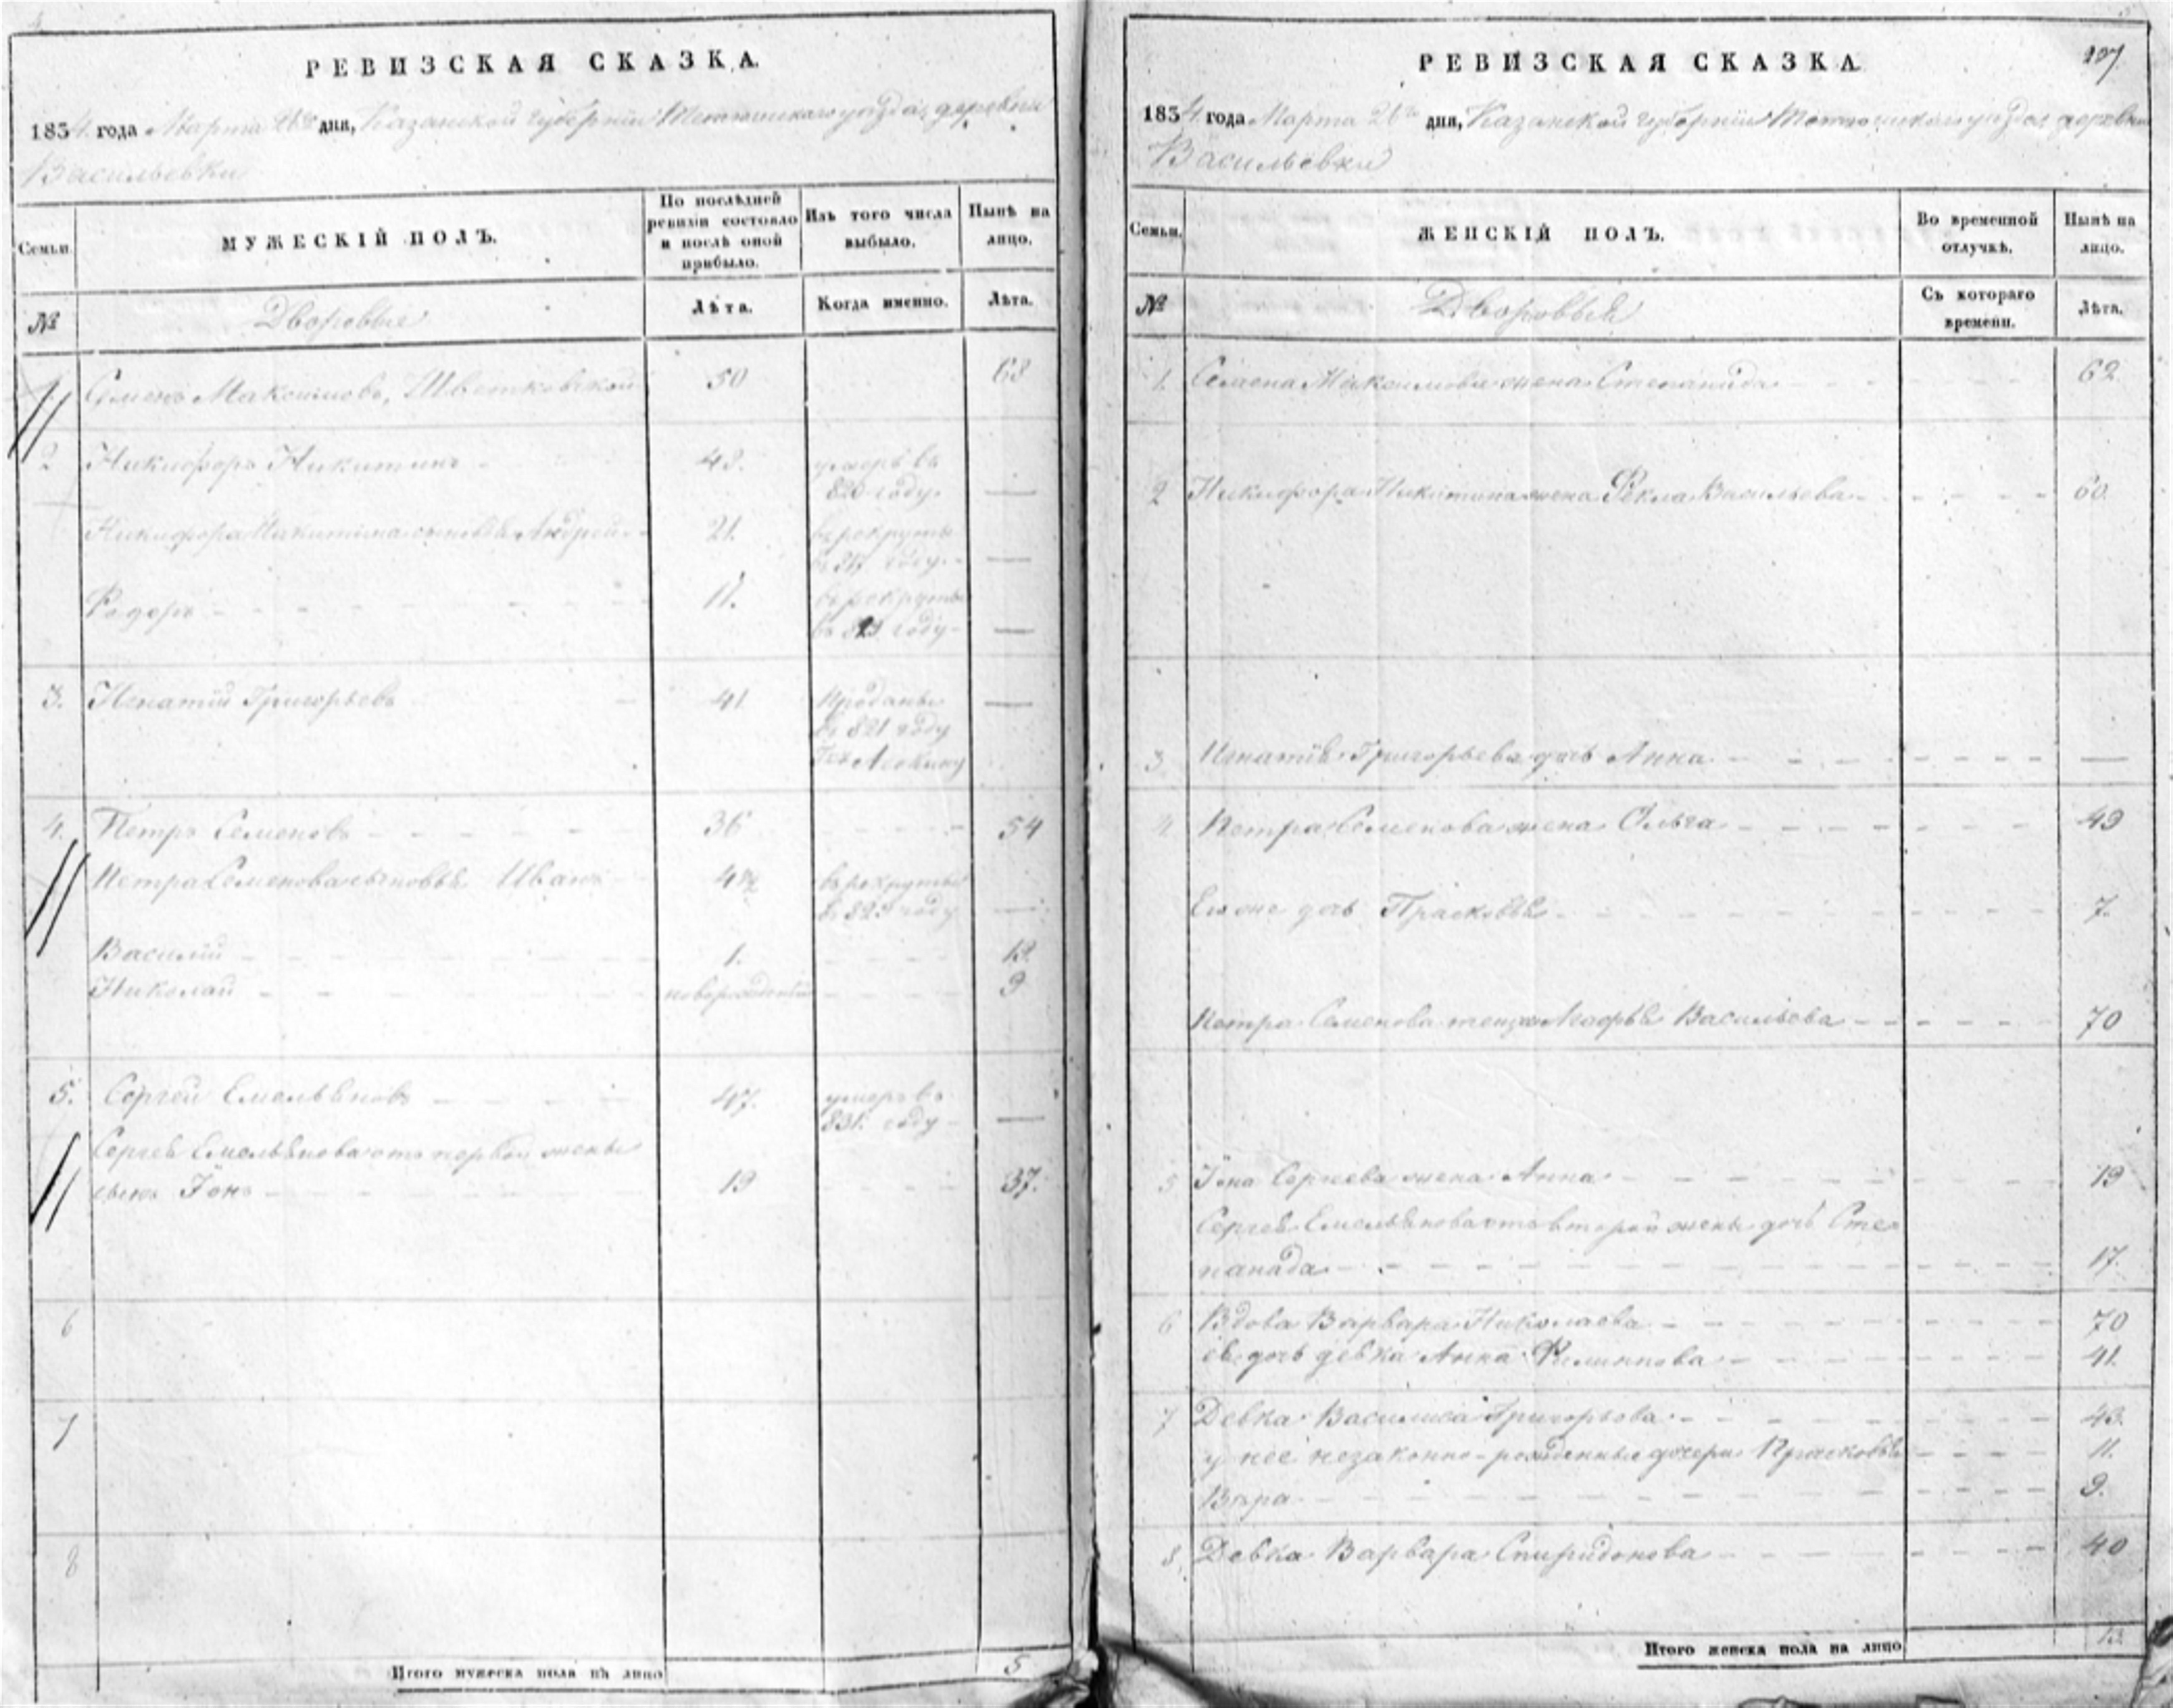 РЕВИЗСКАЯ СКАЗКА.
1834 года Марта 26го дня, Казанской губернiи Тетюшскаго уезда, деревни
Васильевки
Семьи.
МУЖЕСКIЙ ПОЛЪ.
По послѣдней
ревизiи состояло
и послѣ оной
прибыло.
Изъ того числа
выбыло.
Нынѣ на
лицо.
№
Дворовые
Лѣта.
Когда именно.
Лѣта.
1 Семенъ Максимовъ, Цветковской 50 68
2 Никифоръ Никитинъ 48. умеръ въ
820 году. —
Никифора Никитина сыновья Андрей 21. въ рекруты
году —
Федоръ 11. въ рекруты
въ году —
3. Игнатiй Григорьевъ 41 Проданы —
въ 821 году
4. Петръ Семеновъ 36 54
Петра Семенова сыновья Иванъ въ рекруты
въ году —
Василiй 1.
Николай новорожденный 9
5. Сергей Емельяновъ 47. умеръ въ
831. году —
Сергея Емельянова отъ первой жены
сынъ Iонъ 19 37.
6
7
8
Итого мужеска пола на лицо 5
РЕВИЗСКАЯ СКАЗКА 107
1834 года Марта 26го дня, Казанской губернiи Тетюшскаго уезда, деревни
Васильевки
Семьи.
ЖЕНСКIЙ ПОЛЪ.
Во временной
отлучкѣ.
Нынѣ на
лицо.
№
Дворовыя
Съ котораго
времени.
Лѣта.
1. Семена Максимова жена Степанида 62
2 Никифора Никитина жена Фекла Васильева 60.
3 Игнатiя Григорьева дочь Анна —
4 Петра Семенова жена Ольга 49
дочь Прасковья 7.
Петра Семенова теща Васильева 70
5 Iона Сергеева жена Анна 19
Сергея Емельянова отъ второй жены дочь Сте
панида 17.
6 Вдова Варвара Николаева 70
ея дочь девка Анна Филиппова 41.
7 Девка Василиса Григорьева 43.
у нее незаконно-рожденные дочери Прасковья 11.
Вѣра 9.
8. Девка Варвара Спиридонова 40
Итого женска пола на лицо